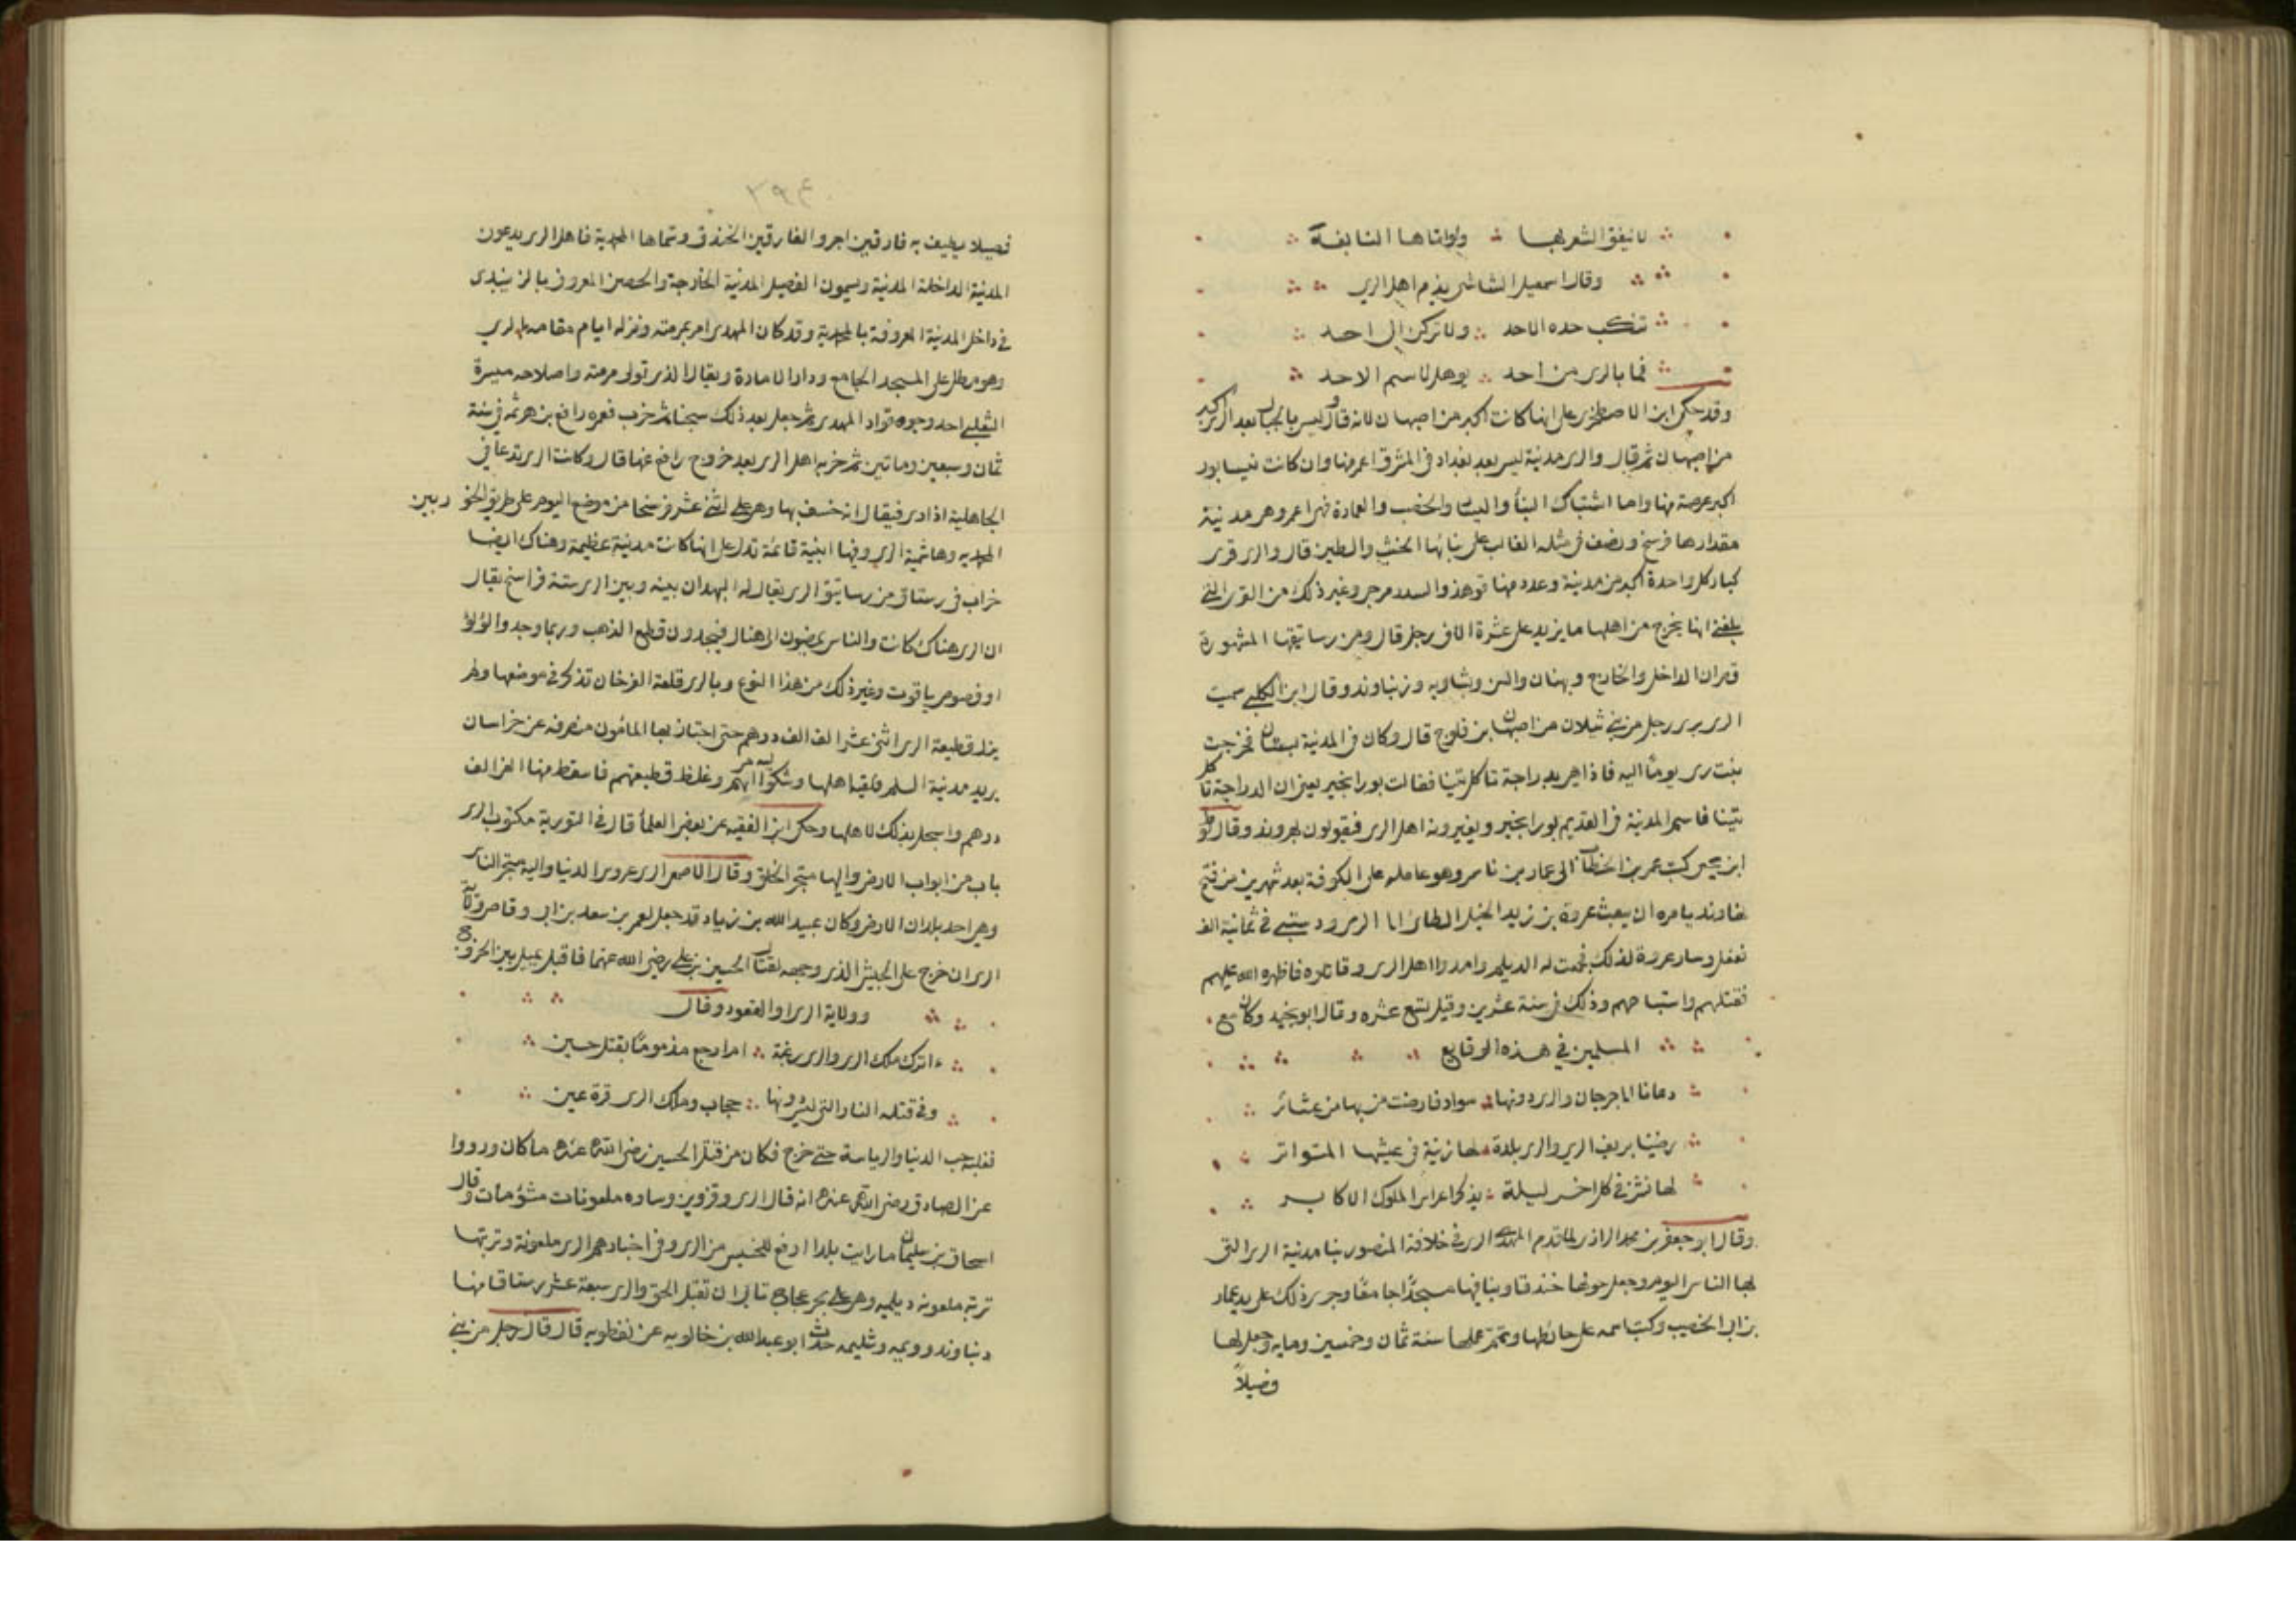 لا ينفق الشعر بها ولو اتاها النابغة
وقال اسمعيل الشاشي يذم اهل الري
تنكب حدة الاحد ولا تركن الى احد
فما بالري من احد يوهل لاسم الاحد
وقد حكى ابن الاصطخرى على انها كانت اكبر من اصبهان لانه قال وليس بالجبال بعد الري اكبر
من اصبهان ثم قال والرى مدينة ليس بعد بغداد فى المشرق اعمر منها وان كانت نيسابور
اكبر عرصة منها واما اشتباك البنأ واليسار والخصب والعمارة فهى اعمر وهى مدينة
مقدارها فرسخ ونصف فى مثله الغالب على بنائها الخشب والطين قال والرى قرى
كبار كل واحدة اكبر من مدينة وعدد منها قوهذ والسد ومرجى وغير ذلك من القرى التى
بلغنى انها يخرج من اهلها ما يزيد على عشرة الاف رجل قال ومن رساتيقها المشهورة
قصران الداخل والخارج وبهنان والسن وبشاويه ودنباوند وقال ابن الكلبى سميت
الرى برى رجل من بنى شيلان من اصبهان بن فلوج قال وكان فى المدينة بستان فخرجت
بنت رى يوما اليه فاذا هى بدراجة تاكل تينا فقالت بورانجير يعنى ان الدراجة تاكل
تينا فاسم المدينة فى القديم بورانجير ويغيرونه اهل الرى فيقولون بهروند وقال لوط
ابن يحيى كتب عمر بن الخطاب الى عمار بن ياسر وهو عامله على الكوفة بعد شهرين من فتح
نهاوند يامره ان يبعث عروة بن زيد الخيل الطائى الى الرى ودستبى فى ثمانية الاف
ففعل وسار عروة لذلك فجمعت له الديلم وامدوا اهل الرى وقاتلوه فاظهره الله عليهم
فقتلهم واستباحهم وذلك فى سنة عشرين وقيل تسع عشره وقال ابو نجيد وكان مع
المسلمين في هذه الوقايع
دعانا الى جرجان والرى دونها سواد فارضت من بها من عشائر
رضينا بريف الري والرى بلدة لها زينة فى عيشها المتواتر
لها نشز في كل اخر ليلة يذكر اعراس الملوك الاكابر
وقال ابو جعفر بن محمد الرازى لما قدم المهدى الرى فى خلافة المنصور بنا مدينة الرى التى
بها الناس اليوم وجعل حولها خندقا وبنا فيها مسجدًا جامعًا وجرى ذلك على يد عمار
بن ابى الخصيب وكتب اسمه على حائطها وتمم عملها سنة ثمان وخمسين ومايه وجعل لها
فصيلاً
٢٩٤
فصيلا يطيف به فارقين اجر والفارقين الخندق وسماها المحمدية فاهل الرى يدعون
المدينة الداخلة المدينة ويسمون الفصيل المدينة الخارجة والحصن المعروف بالزينبدى
فى داخل المدينة المعروفة بالمحمدية وقد كان المهدى امر بمرمته ونزله ايام مقامه بالري
وهو مطل على المسجد الجامع ودار الامارة ويقال الذى تولى مرمته واصلاحه ميسرة
التغلبى احد وجوه قواد المهدى ثم جعل بعد ذلك سجنا ثم خرب فعمره رافع بن هرثمه فى سنة
ثمان وسبعين وماتين ثم خربه اهل الرى بعد خروج رافع عنها قال وكانت الرى تدعا فى
الجاهلية ازارى فيقال انه خسف بها وهى على اثنى عشر فرسخا من موضع اليوم على طريق الخو ر بين
المحمديه وهاشمية الري وفيها ابنية قائمة تدل على انها كانت مدينة عظيمة وهناك ايضا
خراب فى رستاق من رساتيق الرى يقال له البهزان بينه وبين الرى ستة فراسخ يقال
ان الرى هناك كانت والناس يمضون الى هناك فيجدون قطع الذهب وربما وجدوا لؤلؤ
او فصوص ياقوت وغير ذلك من هذا النوع وبالرى قلعة الفرخان تذكر فى موضعها ولم
يزل قطيعة الرى اثنى عشر الف الف درهم حتى اجتاز بها المأمون منصرفه عن خراسان
يريد مدينة السلم فلقيه اهلها وشكوا اليه امرهم وغلظ قطيعتهم فاسقط منها الفى الف
درهم واسجل بذلك لاهلها وحكى ابن الفقيه عن بعض العلمأ قال فى التورية مكتوب الرى
باب من ابواب الارض واليها متجر الخلق وقال الاصمعى الرى عروس الدنيا واليه متجر الناس
وهى احد بلدان الارض وكان عبيد الله بن زياد قد جعل لعمر بن سعد بن ابى وقاص ولاية
الرى ان خرج على الجيش الذى وجهه لقتال الحسين بن على رضى الله عنهما فاقبل يميل بين الخروج
وولاية الرى او القعود وقال
ءاترك ملك الرى والرى رغبة ام ارجع مذموما بقتل حسين
وفى قتله النار التى ليس دونها حجاب وملك الرى قرة عين
فغلبه حب الدنيا والرياسة حتى خرج فكان من قتل الحسين رضى الله عنه ما كان ورووا
عن الصادق رضى الله عنه انه قال الرى وقزوين وساوه ملعونات مشؤمات وقال
اسحاق بن سليمان ما رايت بلدا ارفع للخسيس من الرى وفى اخبارهم الرى ملعونة وتربتها
تربة ملعونه ديلميه وهى على بحر عجاج تابى ان تقبل الحق والرى سبعة عشر رستاقا منها
دنباوند وويمه وشلمبه حدث ابو عبد الله بن خالويه عن نفطويه قال قال رجل من بنى